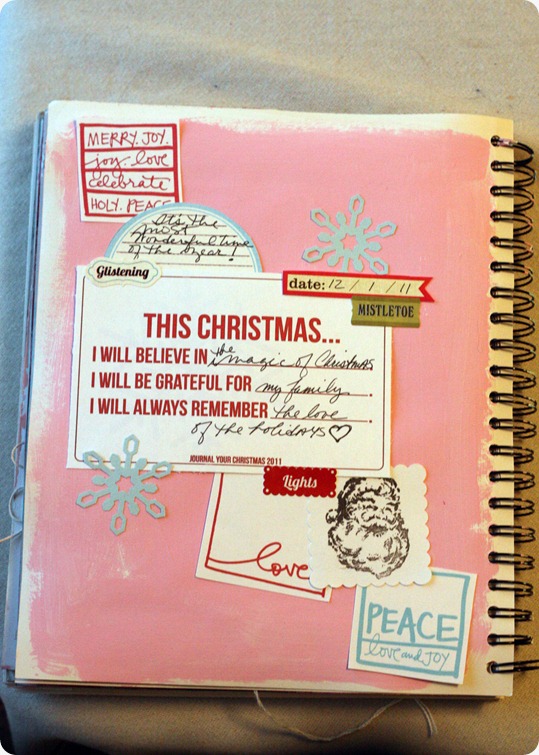 MERRY. JOY.
joy. love
celebrate
HOLY. PEACE
It's the
most
wonderful time
of the year!
Glistening
date: 12 / 1 / 11
MISTLETOE
THIS CHRISTMAS...
I WILL BELIEVE IN the magic of Christmas
I WILL BE GRATEFUL FOR my family.
I WILL ALWAYS REMEMBER the love.
of the holidays♡
JOURNAL YOUR CHRISTMAS 2011
Lights
love
PEACE
love and JOY